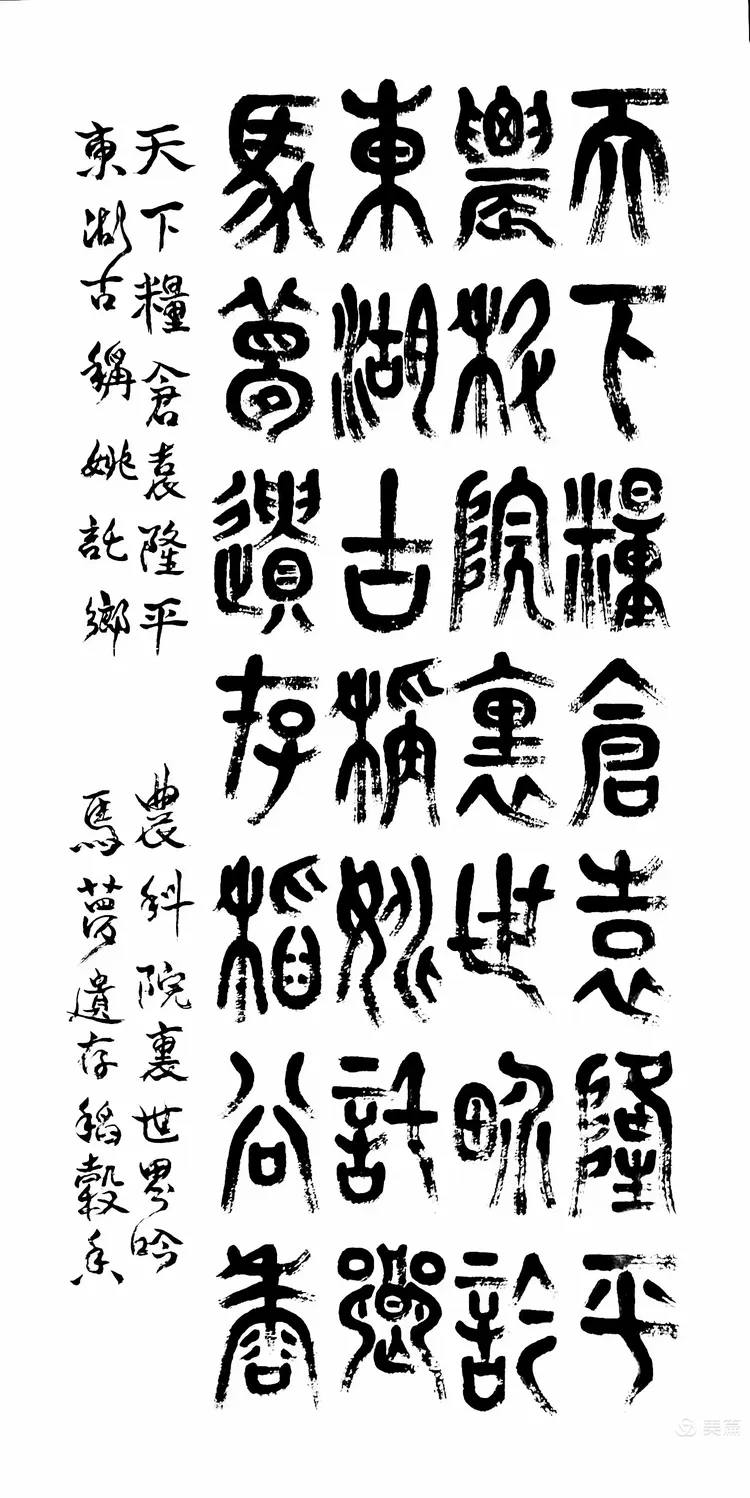 天下糧倉袁隆平
農科院裏世界吟
東湖古稱姚託鄉
馬夢遺存稻谷香
天下糧倉袁隆平 農科院裏世界吟
東湖古稱姚託鄉 馬夢遺存稻穀香
美篇